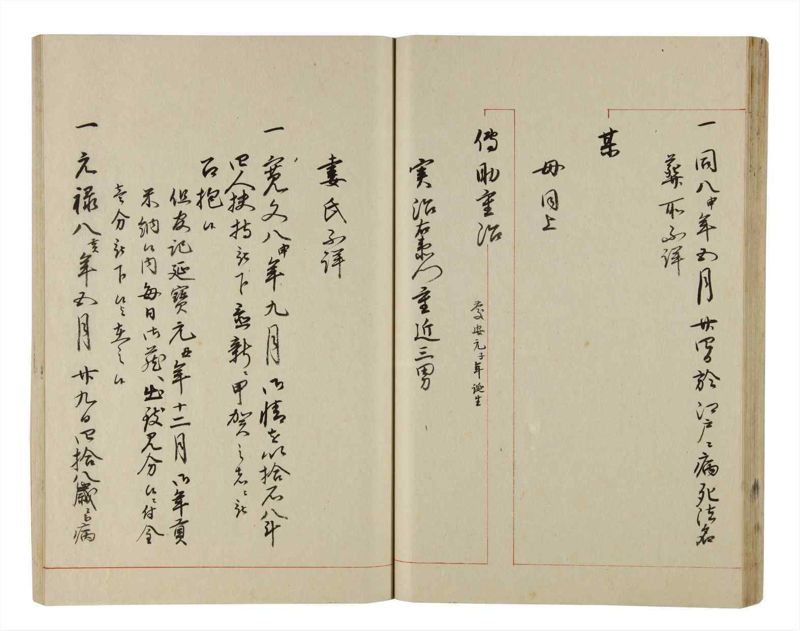 一 同八申年五月廿四日於江戸ニ病死法名
葬所不詳
某
母同上
傳助重治
慶安元子年誕生
実治右衛門重近三男
妻氏不詳
一 寛文八申年九月御情を以拾石八斗
四人扶持被下置新ニ甲賀之者ニ被
召抱候
但友記延寶元丑年十二月御年貢
米納候内毎日御蔵ニ出致見分候ニ付金
壱分被下候と有之候
一 元禄八亥年五月廿九日四拾八歳ニ而病